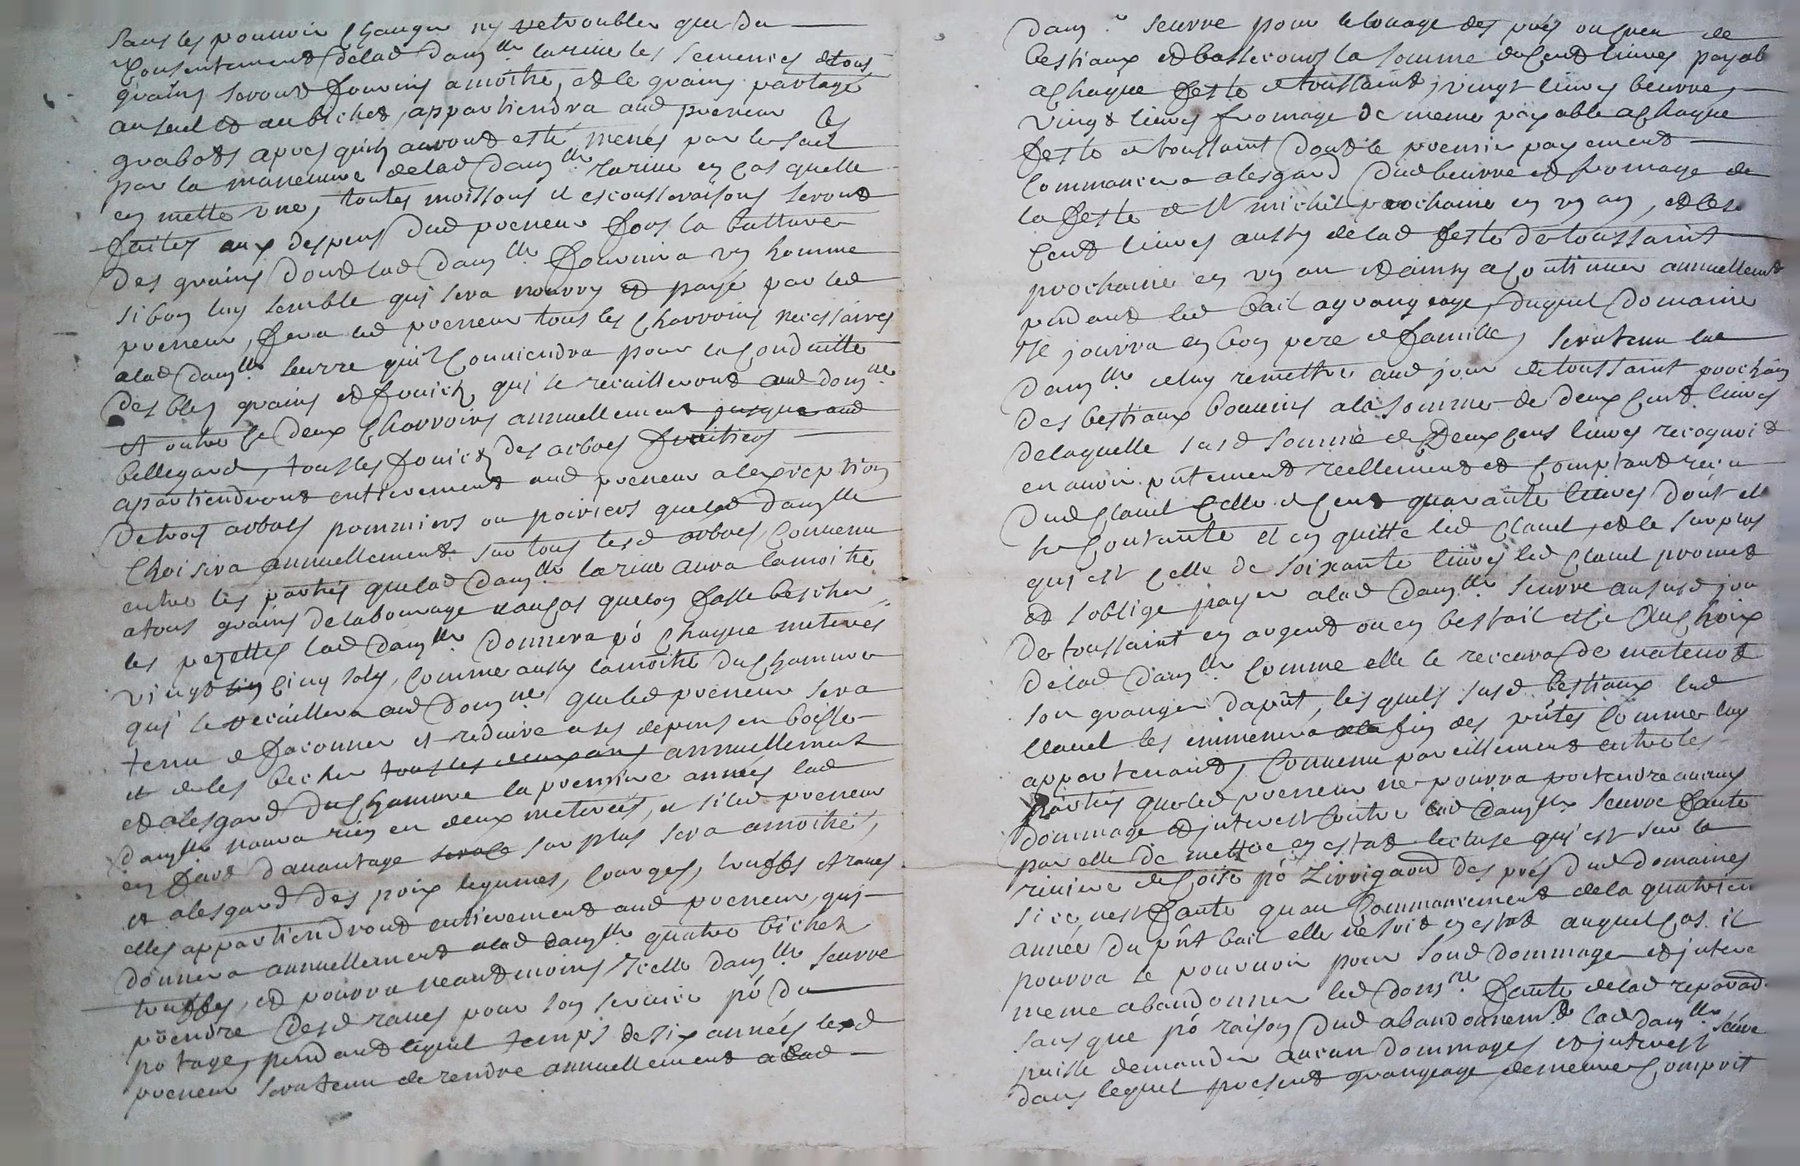 sans les pouvoir changer ny retroubler que du
Consentement delad dam.lle larive les semences detous
grains seront fournis amoitié, et le grains partagé
au seuil et au bichet, appartiendra aud preneur les
grabots apres quils auront esté menés par le
par la maneuvre delad dam.lle larive en cas quelle
en mette une, toutes moissons et escousseraisons seront
faites aux despens dud preneur fors la batture
des grains dont lad dam.lle fournira un homme
si bon luy semble qui sera nourry et payé par led
preneur, fera led preneur tous les charrois necessaires
alad dam.lle seurre quil conviendra pour la conduitte
des bleds grains et fruicts qui se recailleront aud dom.ne
et outre ce deux charrois annuellement jusque aud
bellegard, tous les fruicts des arbres fruitiers
apartiendront entierement aud preneur alexception
de trois arbres pommiers ou poiriers que lad dam.lle
choisira annuellement sur tous lesd arbres, convenu
entre les parties que lad dam.lle larive aura lamoitié
atous grains delabourage et au cas que lon fasse bescher
les pezettes lad dam.lle donnera po chaque meterées
vingt cinq sols, comme aussy lamoitié du chanvre
qui se recaillera aud dom.ne que led preneur sera
tenu de faconner et reduire ases depens en boiste
et de les becher tous les deux ans annuellement
et alesgard du chanvre la premiere année lad
dam.lle naura rien en deux meterées, et si led preneur
en fait davantage le surplus sera amoitié,
et alesgard des poix legumes, courges, truffes et raves
elles appartiendront entierement aud preneur, qui
donnera annuellement alad dam.lle quatre bichets
truffes, et pourra neantmoins icelle dam.lle seurre
prendre desd raves pour son service po du
potage, pendant lequel temps de six années led
preneur sera tenu de rendre annuellement alad
dam.lle seurre pour le louage des prés ou creu de
bestiaux et bassecourt la somme de cent livres payab
achaque feste de toussaint, vingt livres beurre,
vingt livres fromage de meme payable achaque
feste de toussaint dont le premier payement
commancera alesgard dud beurre et fromage de
la feste de St michel prochaine en un an, et les
cent livres aussy delad feste de toussaint
prochaine en un an et ainsy a continuer annuellement
pendant led bail agrangeage, duquel domaine
il jouira en bon pere de famille, sera tenu lad
dam.lle de luy remettre aud jour de toussaint prochain
des bestiaux bouvins ala somme de deux cent livres
delaquelle susd somme de deux cens livres recognoit
en avoir pntement reellement et comptant receu
dud clavel celle de cent quarante livres dont elle
se contante et en quitte led clavel, et le surplus
qui est celle de soixante livres led clavel promet
et soblige payer alad dam.lle seurre aususd jour
de toussaint en argent ou en bestail et ce au choix
delad dam.lle comme elle le recevra de matenot
son granger dapnt, lesquels susd bestiaux led
clavel les emmenera ala fin des pntes comme luy
appartenants, convenu pareillement entre les
parties que led preneur ne pourra pretendre aucuns
dommage et interest contre lad dam.lle seurre faute
par elle de mettre en estat lecluse qui est sur la
riviere de Coise po Lirrigaon des prés dud domaines
si ce nest faute quau commancement dela quatrieme
année du pnt bail elle ne soit en estat auquel cas il
pourra se pourvoir pour sond dommage et interest
meme abandonner led dom.ne faute delad reparaon
sans que po raison dud abandonnem.t lad dam.lle seurre
puisse demander aucun dommages et interest
dans lequel present grangeage demeure comprit